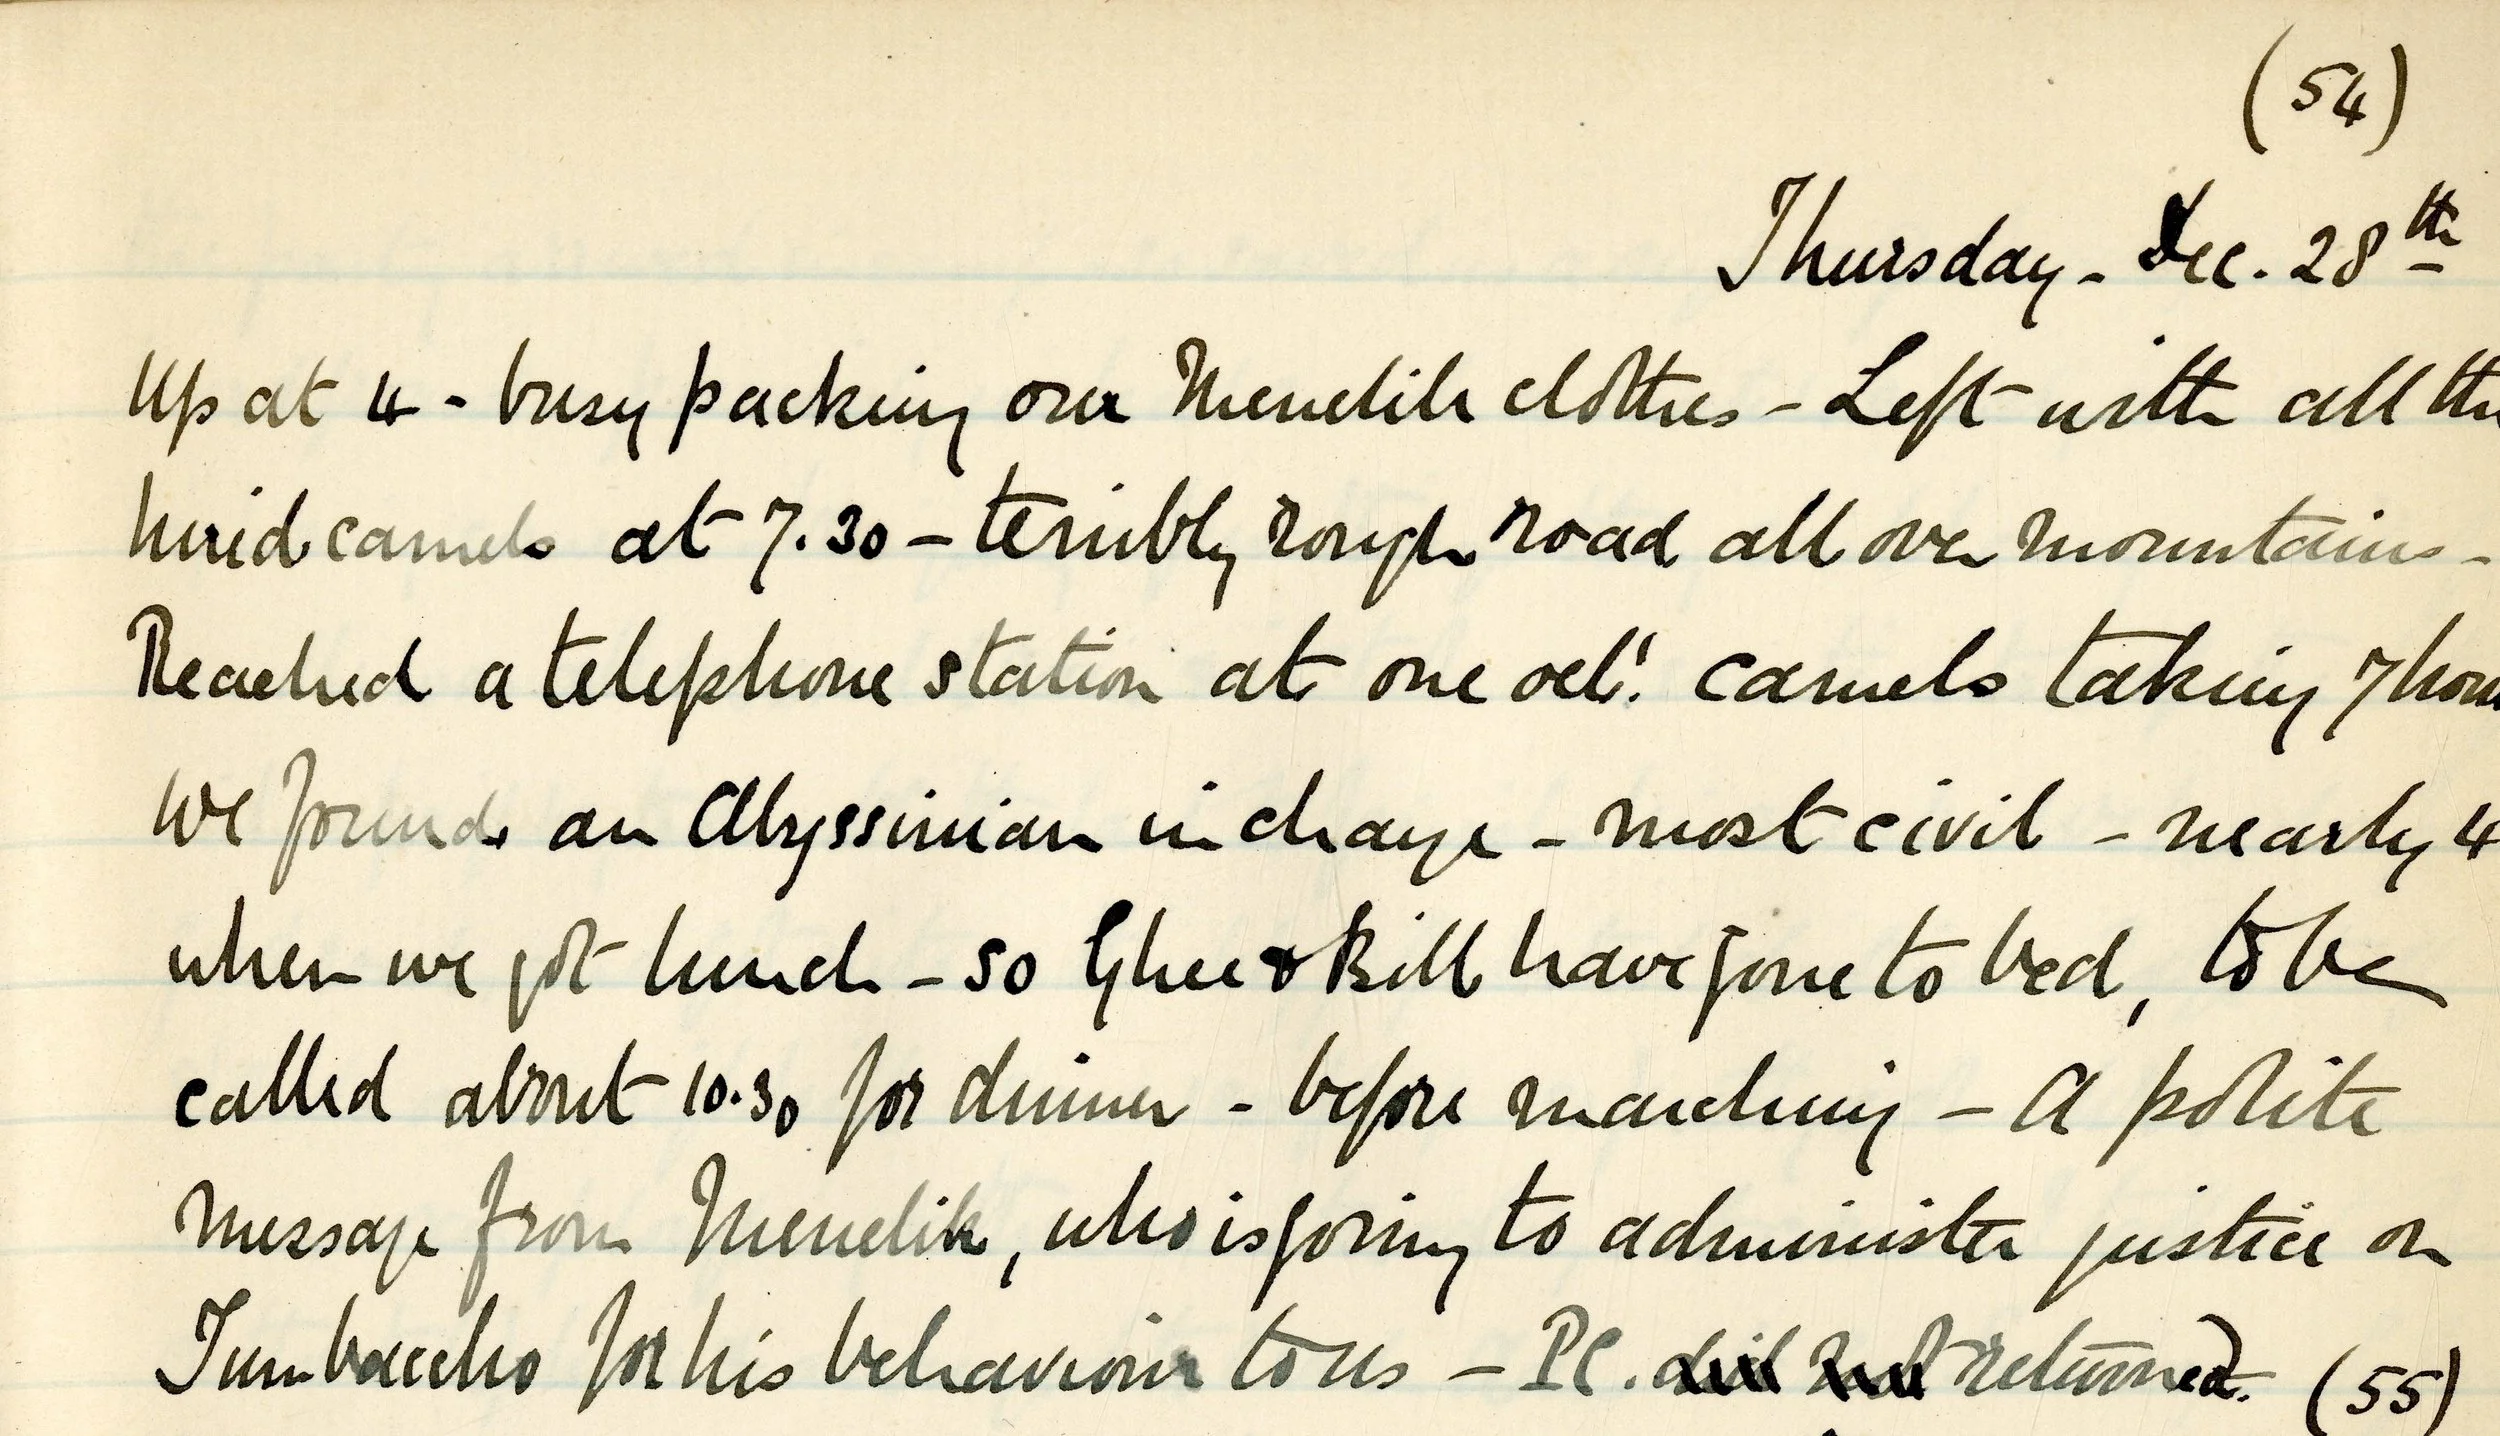 (54)
Thursday - Dec. 28th
Up at 4 - busy packing our Menelik clothes - Left with all the
hired camels at 7.30 - terribly rough road all over mountains -
Reached a telephone station at one ocl! camels taking 7 hours
We found an Abyssinian in charge - most civil - nearly 4
when we got lunch - so Ghee & Bill have gone to bed, to be
called about 10.30 for dinner - before marching - A polite
message from Menelik, who is going to administer justice on
Tumbaccho for his behaviour to us - P.C. did not returned. (55)